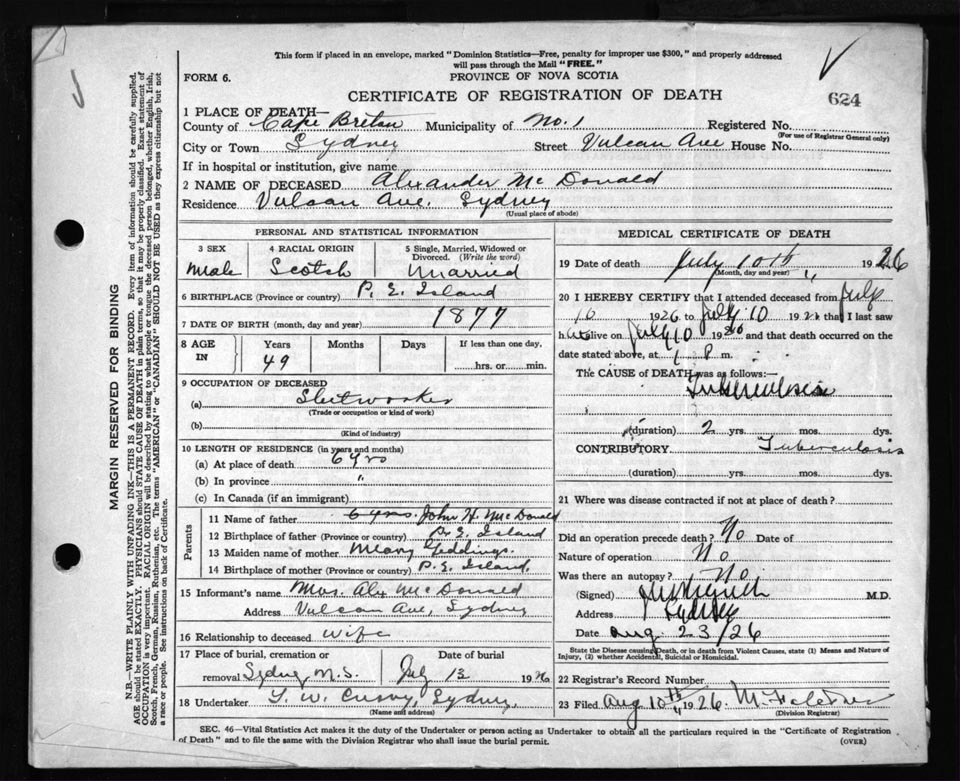 This form if placed in an envelope, marked "Dominion Statistics—Free, penalty for improper use $300," and properly addressed
will pass through the Mail "FREE."
FORM 6.
PROVINCE OF NOVA SCOTIA
CERTIFICATE OF REGISTRATION OF DEATH
624
1 PLACE OF DEATH—
County of Cape Breton Municipality of No. 1 Registered No.
(For use of Registrar General only)
City or Town Sydney Street Vulcan Ave House No.
If in hospital or institution, give name
2 NAME OF DECEASED Alexander McDonald
Residence Vulcan Ave, Sydney
(Usual place of abode)
PERSONAL AND STATISTICAL INFORMATION
3 SEX
Male
4 RACIAL ORIGIN
Scotch
5 Single, Married, Widowed or
Divorced. (Write the word)
Married
6 BIRTHPLACE (Province or country) P. E. Island
7 DATE OF BIRTH (month, day and year) 1877
8 AGE IN
Years Months Days If less than one day,
49 hrs. or min.
9 OCCUPATION OF DECEASED
(a)
(Trade or occupation or kind of work)
(b)
(Kind of industry)
10 LENGTH OF RESIDENCE (in years and months)
(a) At place of death 6 yrs
(b) In province "
(c) In Canada (if an immigrant)
6 yrs.
Parents
11 Name of father John H. McDonald
12 Birthplace of father (Province or country) P. E. Island
13 Maiden name of mother Meany
14 Birthplace of mother (Province or country) P. E. Island,
15 Informant's name Mrs. Alex McDonald
Address Vulcan Ave, Sydney
16 Relationship to deceased wife
17 Place of burial, cremation or Date of burial
removal Sydney, N.S. July 13 1926
18 Undertaker Sydney,
(Name and address)
MEDICAL CERTIFICATE OF DEATH
19 Date of death July 10th 1926
(Month, day and year) "
20 I HEREBY CERTIFY that I attended deceased from July
10 1926 to July 10 1926 that I last saw
h alive on July 10 1926 and that death occurred on the
date stated above, at 1 P m.
The CAUSE of DEATH was as follows:—
Tuberculosis
(duration) 2 yrs. mos. dys.
CONTRIBUTORY Tuberculosis
(duration) yrs. mos. dys.
21 Where was disease contracted if not at place of death?
Did an operation precede death? No Date of
Nature of operation No
Was there an autopsy? No
(Signed) M.D.
Address Sydney
Date Aug. 23/26
State the Disease causing Death, or in death from Violent Causes, state (1) Means and Nature of
Injury, (2) whether Accidental, Suicidal or Homicidal.
22 Registrar's Record Number
23 Filed Aug 10th 1926
"
(Division Registrar)
SEC. 46—Vital Statistics Act makes it the duty of the Undertaker or person acting as Undertaker to obtain all the particulars required in the "Certificate of Registration
of Death" and to file the same with the Division Registrar who shall issue the burial permit.
(OVER)
MARGIN RESERVED FOR BINDING
N.B.—WRITE PLAINLY WITH UNFADING INK—THIS IS A PERMANENT RECORD. Every item of information should be carefully supplied.
AGE should be stated EXACTLY. PHYSICIANS should STATE CAUSE OF DEATH in plain terms, so that it may be properly classified. Exact statement of
OCCUPATION is very important. RACIAL ORIGIN will be described by stating to what people or tongue the deceased person belonged, whether English, Irish,
Scotch, French, German, Russian, Ruthenian, etc. The terms "AMERICAN" or "CANADIAN" SHOULD NOT BE USED as they express citizenship but not
a race or people. See instructions on back of Certificate.